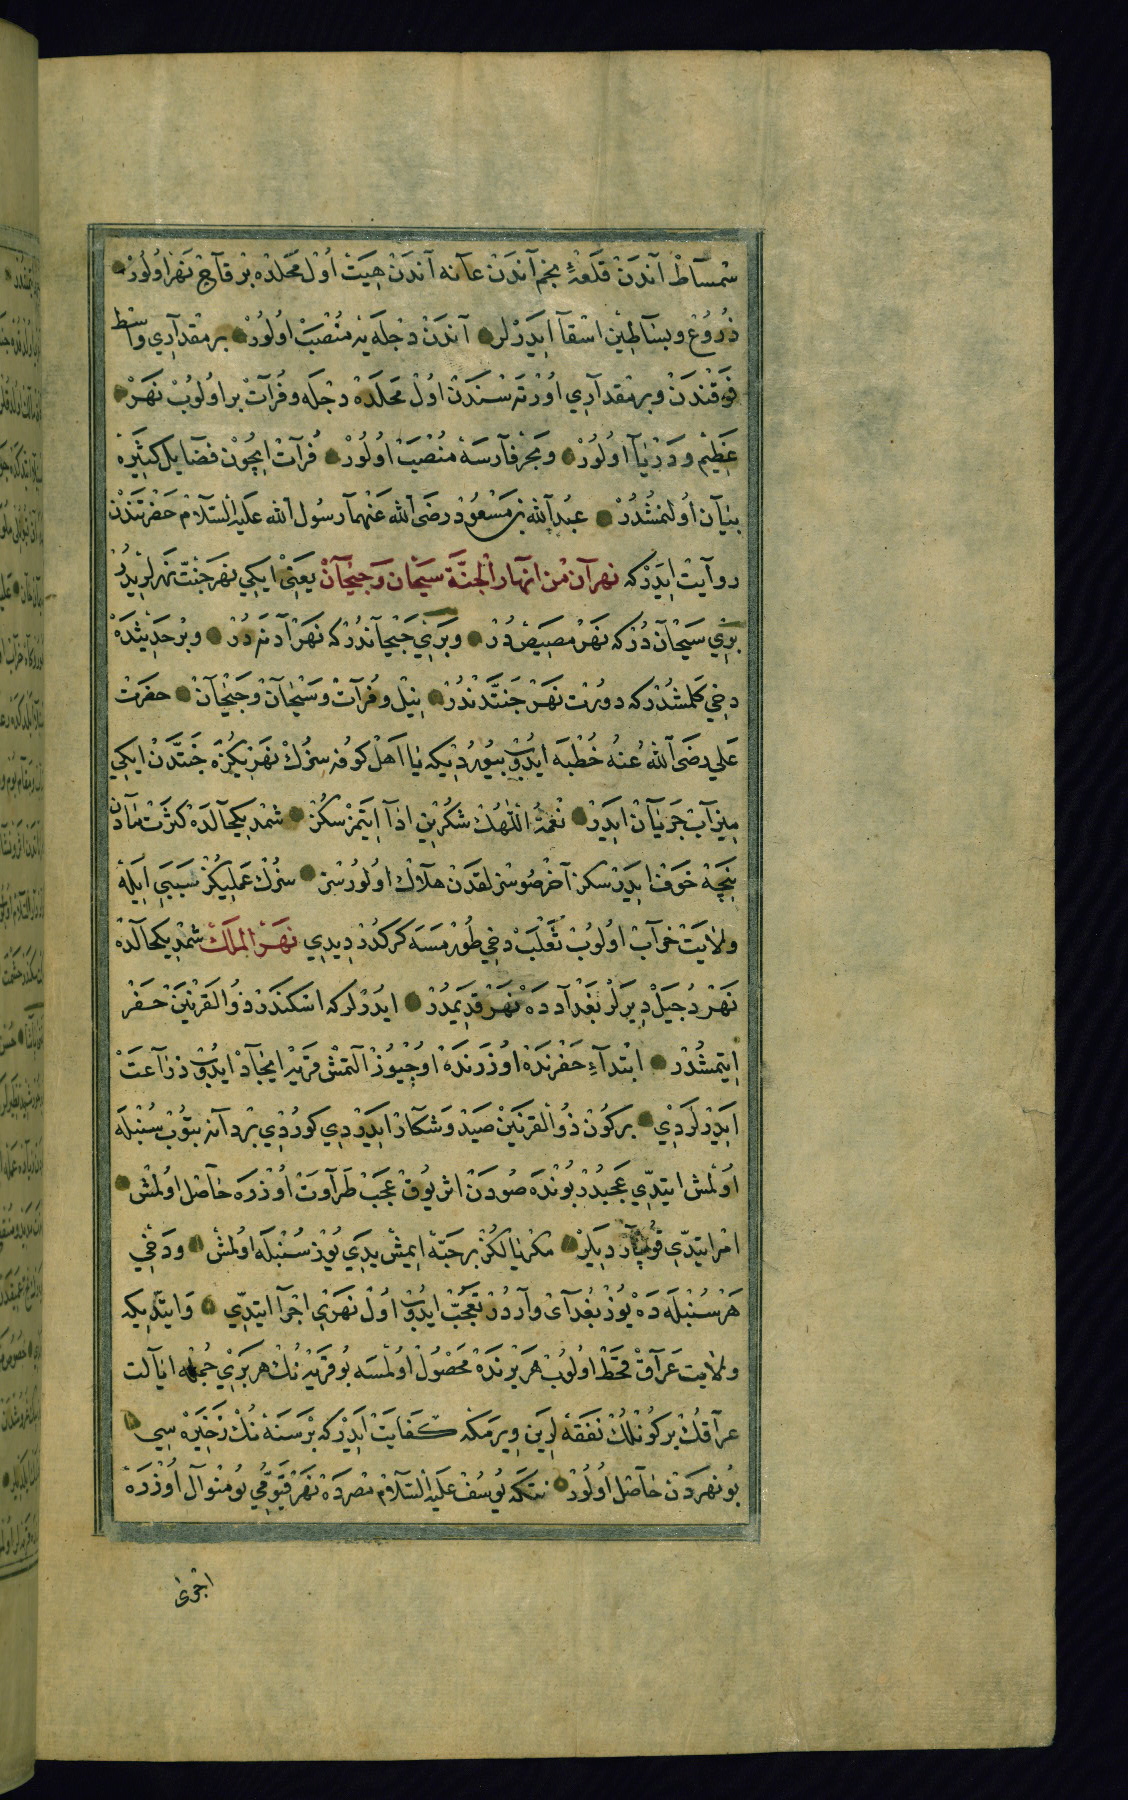 شمساط آندن قلعۀ نجم آندن عانه آندن هیت اول محلده بر قاچ نهر اولور
ذروع و بساطین اسقا ایدرلر آندن دجله یه منصب اولور بر مقداری واسط
فوقندن و بر مقداری اورته سندن اول محلده دجله و فرات بر اولوب نهر
عظیم و دریا اولور و بحر فارسه منصب اولور فرات ایچون فضایل کثیره
بیان اولنمشدر عبد الله بن مسعود رضی الله عنهما رسول الله علیه السلام حضرتندن
روایت ایدر که نهران من انهار الجنة سیحان و جیحان یعنی ایکی نهر جنت نهرلریدر
بری سیحان در که نهر مصیص در و بری جیحاندر که نهر آدنه در و بر حدیثده
دخی کلمشدر که دورت نهر جنتدندر نیل و فرات و سیحان و جیحان حضرت
علی رضی الله عنه خطبه ایدوب بیوردیکه یا اهل کوفه سزک نهریکزه جنتدن ایکی
میزاب جریان ایدر نعمة اللهک شکرین ادا ایتمزسکز شمدیکحالده کثرت مآدن
نیچه خوف ایدرسکز آخر صوسزلقدن هلاک اولورسز سزک عملیکز سببی ایله
ولایت خراب اولوب ثعلب دخی طورمسه کرکدر دیدی نهر الملک شمدیکحالده
نهر دجیل دیرلر بغدادده نهر قدیمدر ایدرلر که اسکندر ذو القرنین حفر
ایتمشدر ابتداء حفرنده اوزرنده اوچیوز التمش قریه ایجاد ایدوب زراعت
ایدرلردی بر کون ذو القرنین صید و شکار ایدردی کوردی بر دانه بتوب سنبله
اولمش ایتدی عجبدر بونده صودن اثر یوق عجب طراوت اوزره حاصل اولمش
امر ایتدی قوپاردیلر مکر یالکز بر حبه ایمش یدی یوز سنبله اولمش و دخی
هر سنبله ده یوز بغدای واردر تعجب ایدوب اول نهری اجرا ایتدی و ایتدیکه
ولایت عراق قحط اولوب هر یرنده محصول اولمسه بو قریه نک هر بری جمله ایالت
عراقک بر کونلک نفقه لرین ویرمکه کفایت ایدر که بر سنه نک ذخیره سی
بو نهردن حاصل اولور نتکه یوسف علیه السلام مصرده نهر فیومی بو منوال اوزره
اجرا